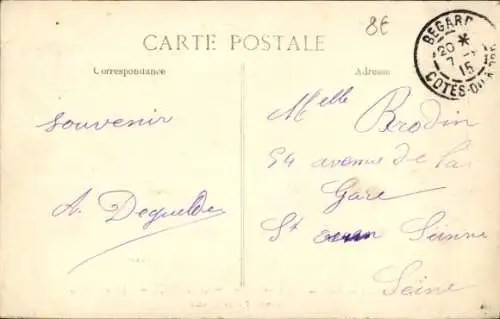 8€
CARTE POSTALE
Correspondance
Adresse
BEGARD
20 *
7 - 
15
COTES-DU-NORD
souvenir
A. Deguelde
Melle Brodin
54 avenue de la
Gare
St Seine
Seine